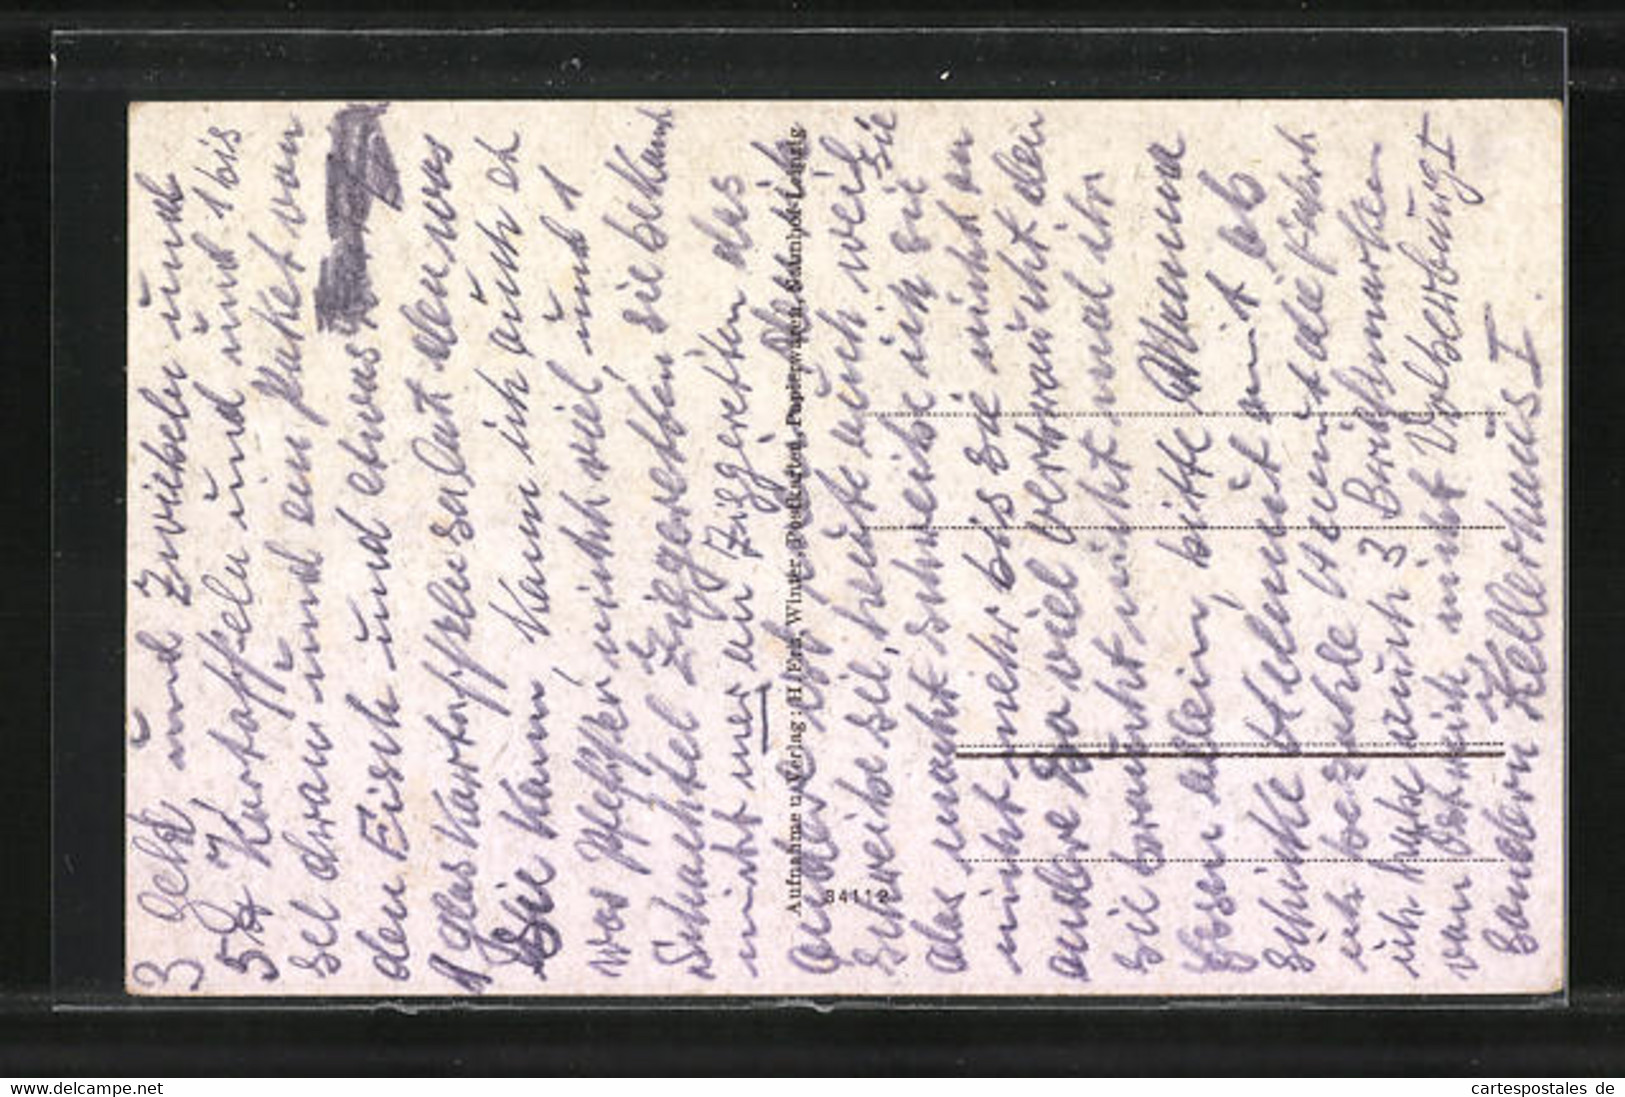 3 Geld und Zwiebeln und
5 ℔ Kartoffeln und und 1 bis
sel dran und ein Paket von
den Fisch und etwas
1 glas Kartoffelnsalat den was
Sie kann, kann ich auch er
was Pfeffer nicht viel, und 1
Schachtel Ziggaretten sie bekamt
nicht mer an Ziggaretten das
Aufnahme u. Verlag: H. Fritz Winter, Postkarten, Papierwaren, Naunhof-Leipzig
84119
schreibe sie, heute auch weil Sie
das macht schreibe ich sie
nicht mehr bis sie nicht an
andre so viel vertraucht den
sie braucht nicht mal ihr
Essen allein, bitte Mamma
schicke Helmut mit ab
ich bezahle Helmut die Fahrt
ich habe auch 3 Berichsmarken
von Ostrich nicht Vetserburg I
sondern Kellerhaus I
www.delcampe.net
cartespostales de